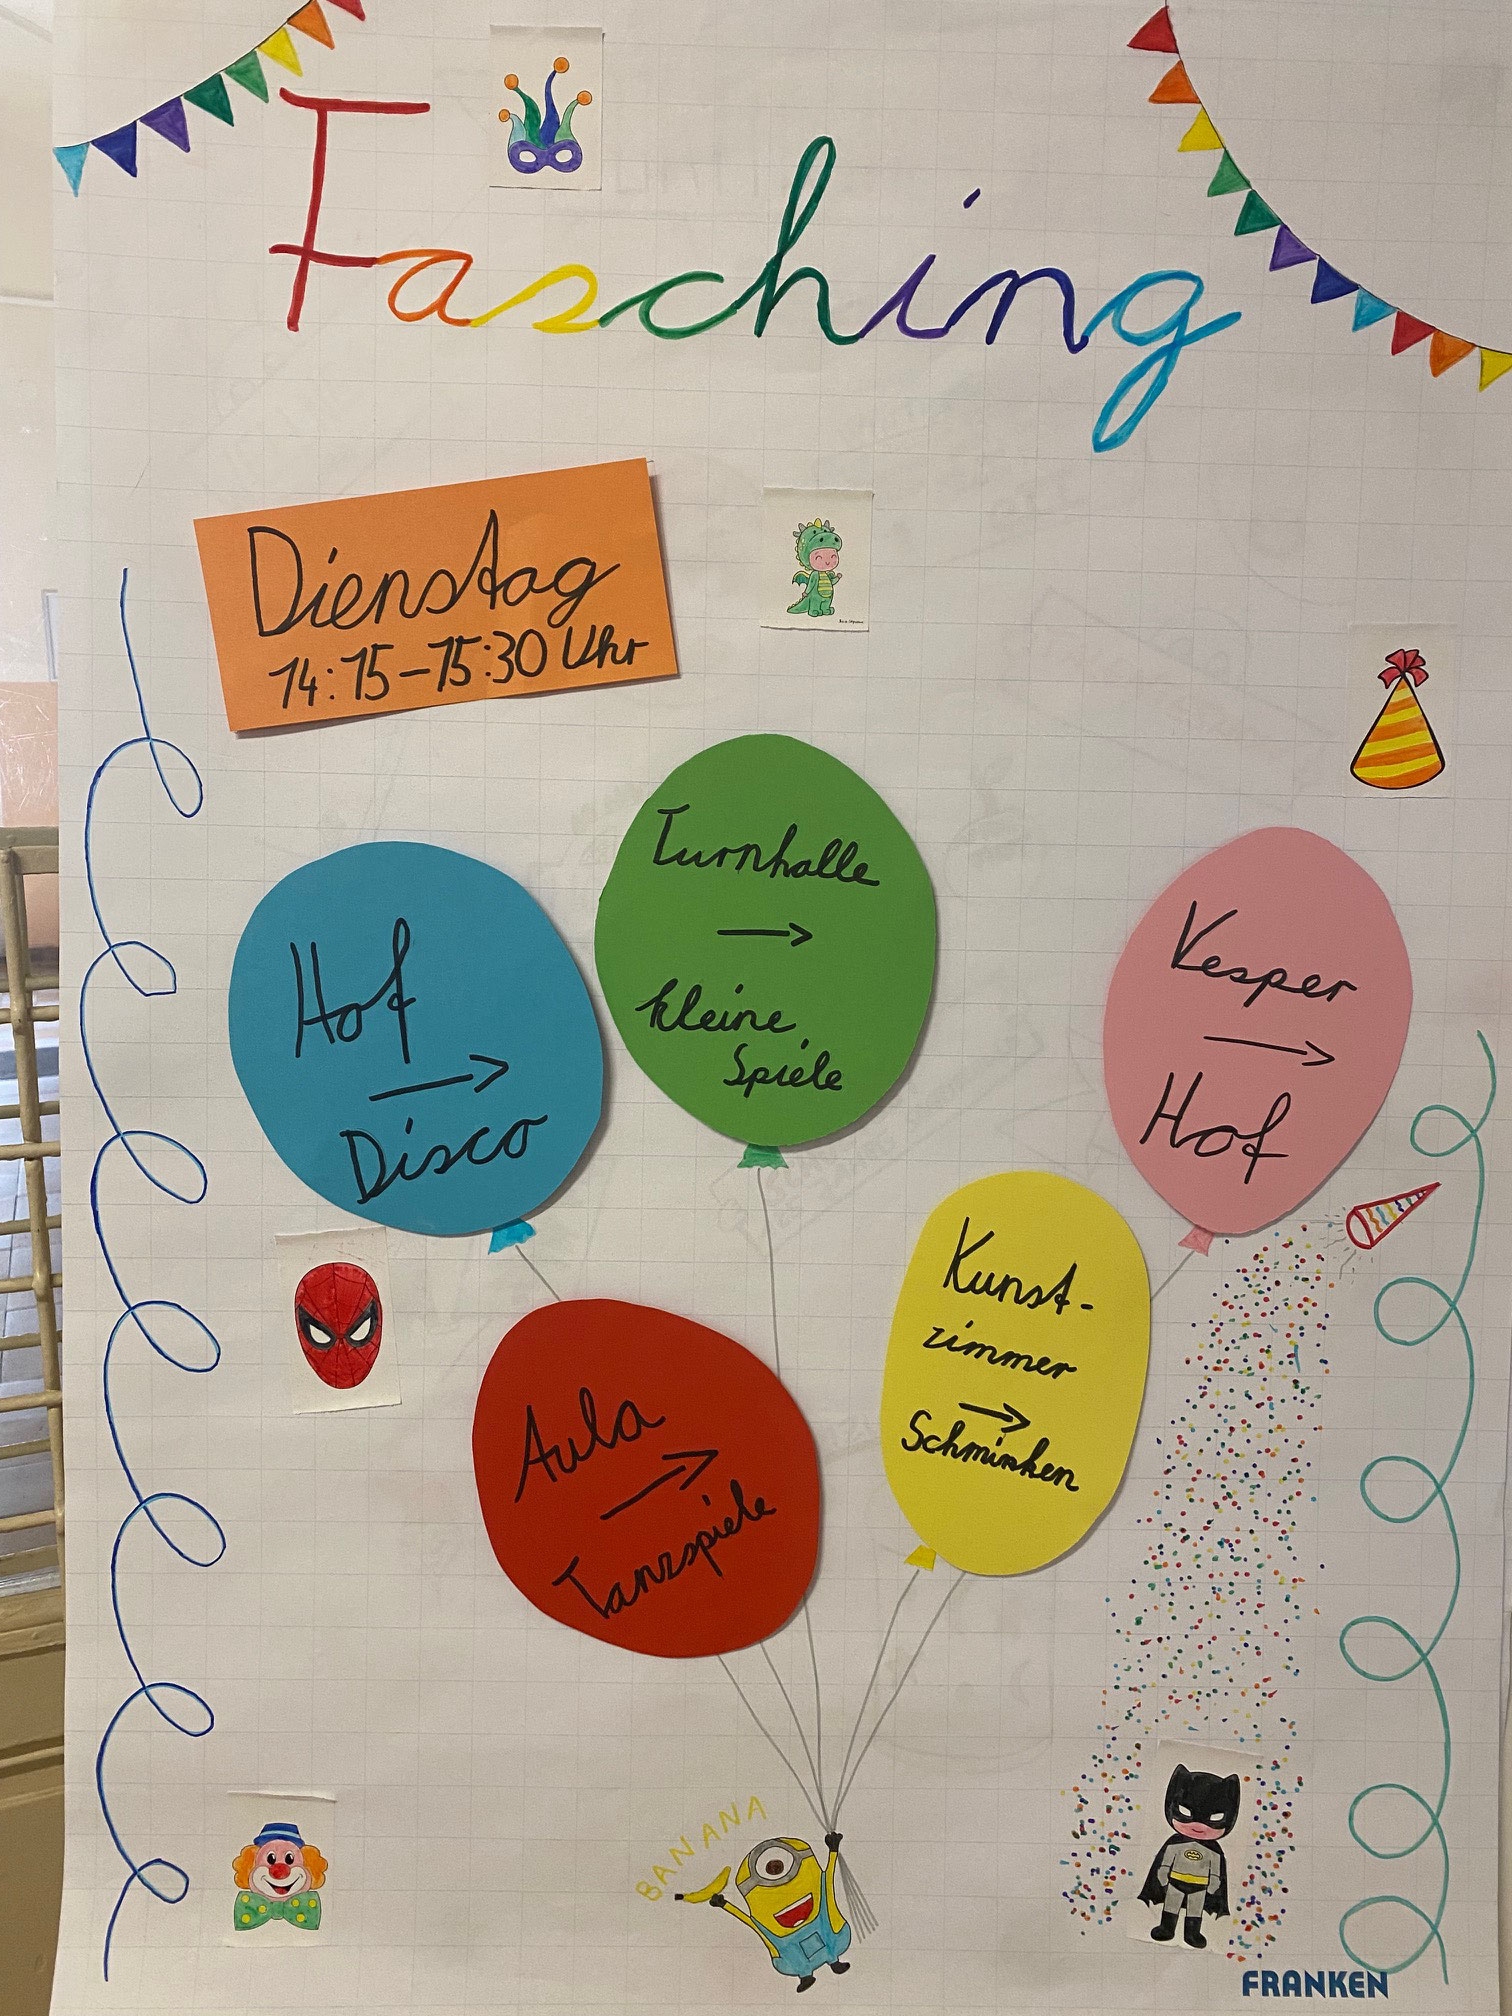 Fasching
Dienstag
14:15-15:30 Uhr
Turnhalle
→
kleine
Spiele
Hof
→
Disco
Vesper
→
Hof
Kunst-
zimmer
→
Schminken
Aula
→
Tanzspiele
BANANA
FRANKEN